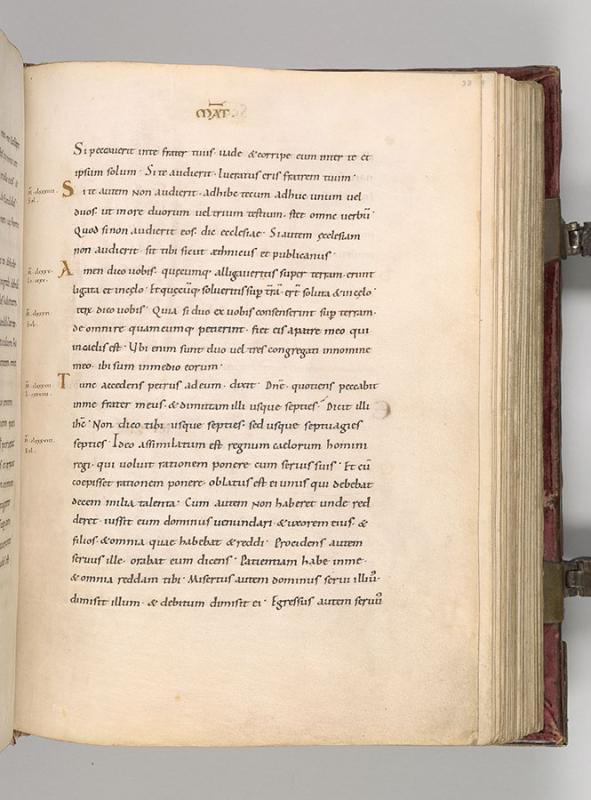 38
MAT
Si peccaverit inte frater tuus· vade & corripe eum inter te et
ipsum solum· Si te audierit· lucratus eris fratrem tuum·
Si te autem Non audierit· adhibe tecum adhuc unum vel
duos· ut in ore duorum vel trium testium· stet omne verbū·
Quod si non audierit eos· dic ecclesiae· Si autem ecclesiam
non audierit· sit tibi sicut æthnicus et publicanus·
Amen dico vobis· quęcumq; alligaveritis super terram· erunt
ligata et incęlo· Et quęcūq; solveritis sup̄ trā· er̄t soluta & incęlo·
dico vobis· Quia si duo ex vobis consenserint sup terram·
de omni re quamcumque petierint· fiet eis apatre meo qui
incaelis est· Ubi enim sunt duo vel tres congregati innomine
meo· ibi sum inmedio eorum·
Tunc accedens petrus ad eum· dixit· Dn̄e· quotiens peccabit
inme frater meus· & dimittam illi usque septies· Dicit illi
ihc̄· Non dico tibi usque septies· sed usque septuagies
septies· Ideo assimilatum est regnum caelorum homini
regi· qui voluit rationem ponere cum servis suis· Et cū
coepisset rationem ponere· oblatus est ei unus qui debebat
decem milia talenta· Cum autem Non haberet unde red
deret· iussit eum dominus venundari· & uxorem eius· &
filios· & omnia quae habebat & reddi· Procidens autem
servus ille· orabat eum dicens· Patientiam habe inme·
& omnia reddam tibi· Misertus autem dominus servi illius·
dimisit illum· & debitum dimisit ei· Egressus autem servus